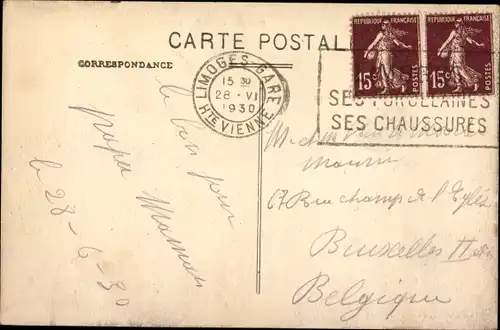 CARTE POSTALE
CORRESPONDANCE
LIMOGES-GARE
15 30
28 · VI
1930
HTE VIENNE
REPUBLIQUE FRANÇAISE
15c
POSTES
REPUBLIQUE FRANÇAISE
15c
POSTES
SES PORCELAINES
SES CHAUSSURES
le bonjour
papa Maman
le 28-6-30
67 Rue champ de l'Eglise
Bruxelles II
Belgique